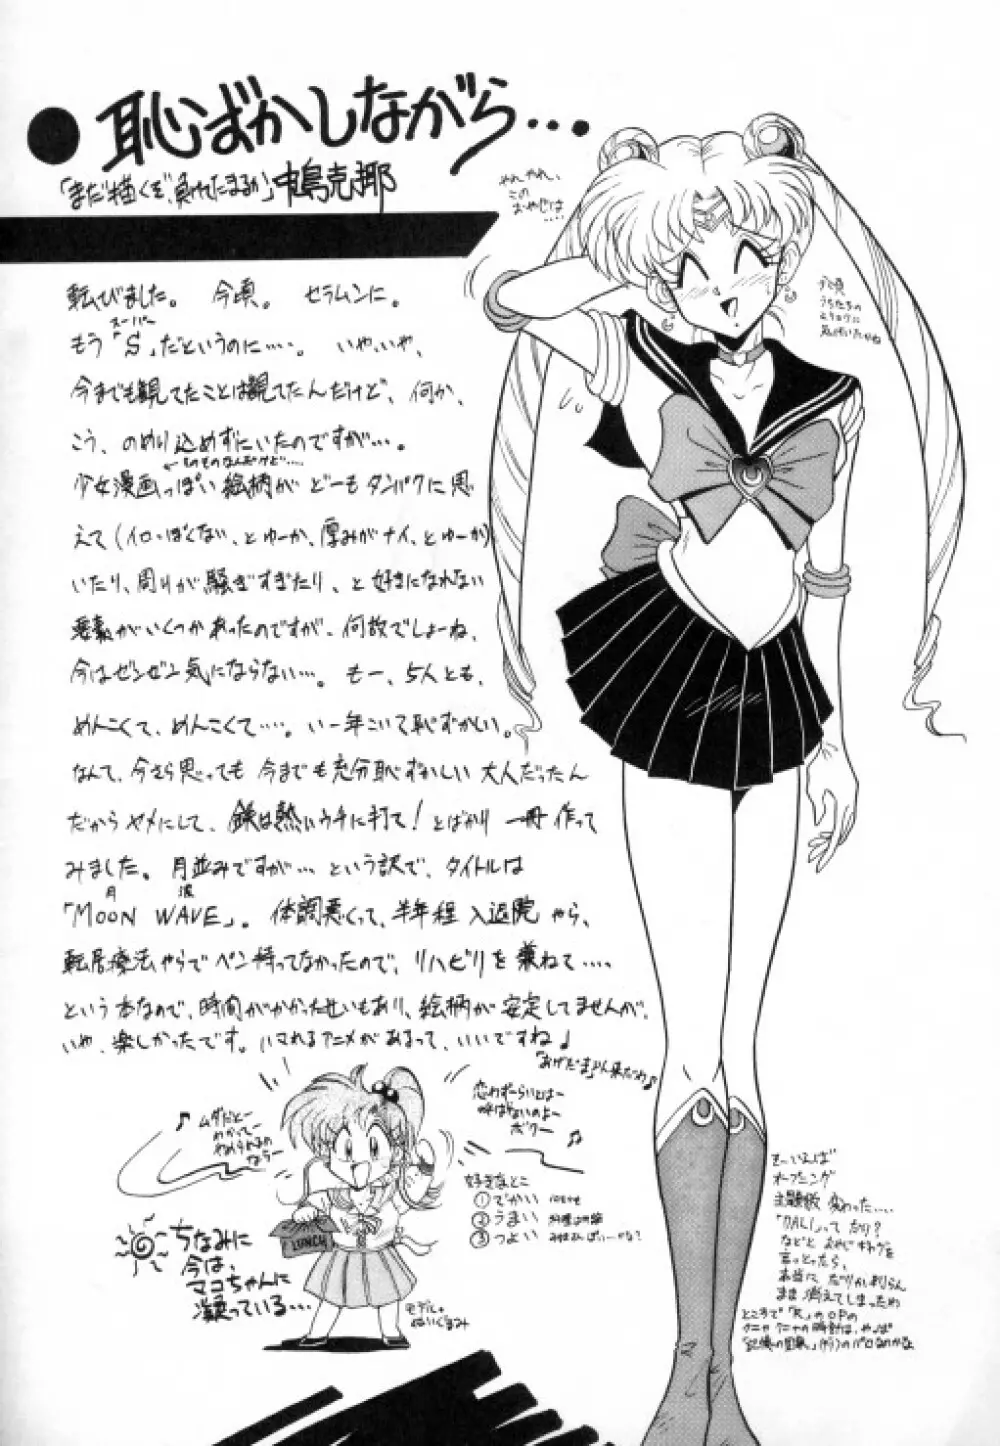 ●恥ずかしながら…
「まだ描くぞ、負けてたまるか」中島克耶
転びました。今頃。セラムンに。
スーパー
もう「S」だというのに‥‥。いや、いや、
今までも観てたことは観てたんだけど、何か、
こう、のめり込めずにいたのですが…。
少女漫画っぽい絵柄がどーもタンパクに思
えて(イロっぽくない、とゆーか、厚みがナイ、とゆーか)
いたり、周りが騒ぎすぎたり、と好きになれない
要素がいくつかあったのですが、何故でしょーね、
今はゼンゼン気にならない…。もー、5人とも、
めんこくて、めんこくて‥‥。いー年こいて恥ずかしい。
なんて、今さら思っても今までも充分恥ずかしい大人だったん
だからヤメにして、鉄は熱いウチに打て!とばかり一冊作って
みました。月並みですが…という訳で、タイトルは
月 波
「MOON WAVE」。体調悪くって、半年程入退院やら、
転居療法やらでペン持ってなかったので、リハビリを兼ねて‥‥
という本なので、時間がかかったせいもあり、絵柄が安定してませんが、
いや、楽しかったです。ハマれるアニメがあるって、いいですね♪
やれやれ、
この
おやじは
‥‥
♪ムダだとー
わかってー
やめられるの
ならー
恋わずーらいとはー
呼ばないのよー
ボクー
♫
好きなとこ
①でかい
②うまい
③つよい
LUNCH
ちなみに
今は、
マコちゃんに
凝っている…
モデル。
ぬいぐるみ
そーいえば
オープニング
主題歌 変わった‥‥
「DALI」って だり?
などと おやじギャグを
言っとったら、
本当に だりか判らん
まま 消えてしまったわ
ところで「R」のOPの